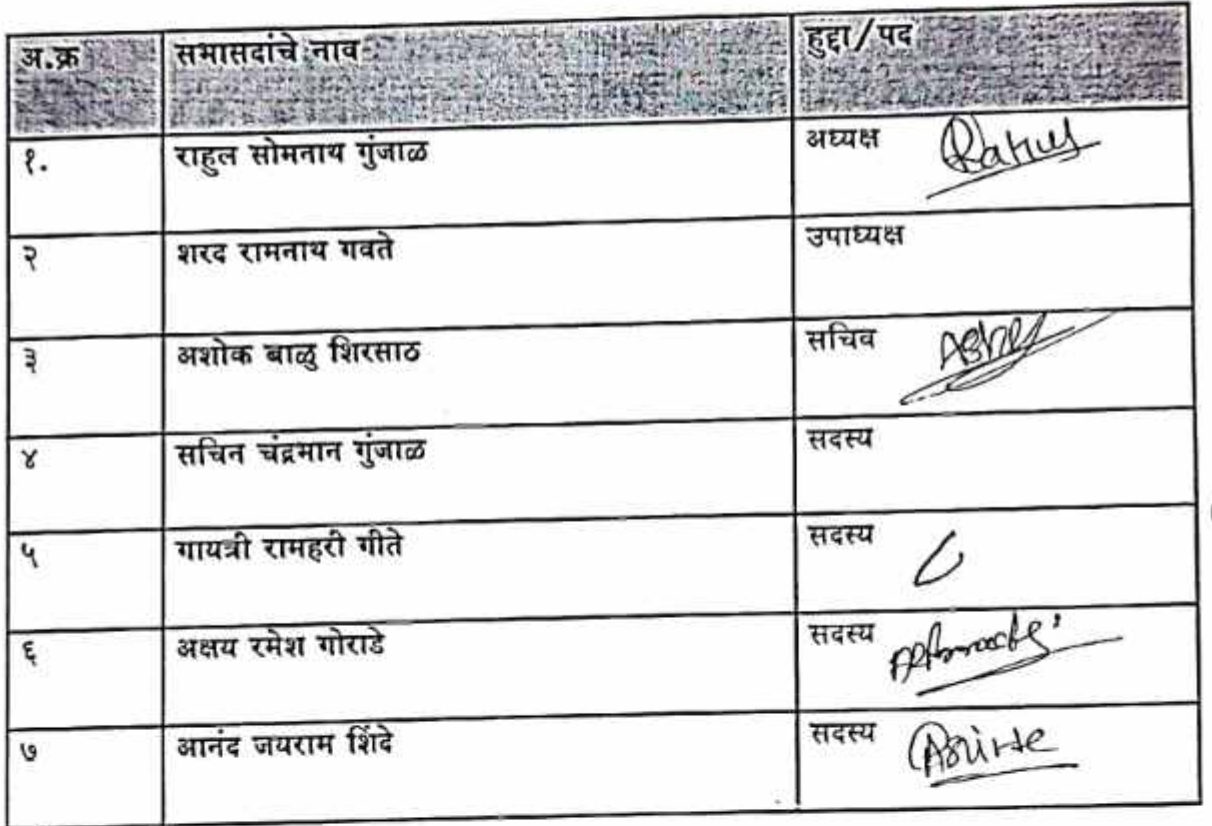 अ.क्र सभासदांचे नाव हुद्दा/पद
१. राहुल सोमनाथ गुंजाळ अध्यक्ष Rahul
२ शरद रामनाथ गवते उपाध्यक्ष
३ अशोक बाळु शिरसाठ सचिव
४ सचिन चंद्रभान गुंजाळ सदस्य
५ गायत्री रामहरी गीते सदस्य
६ अक्षय रमेश गोराडे सदस्य
७ आनंद जयराम शिंदे सदस्य